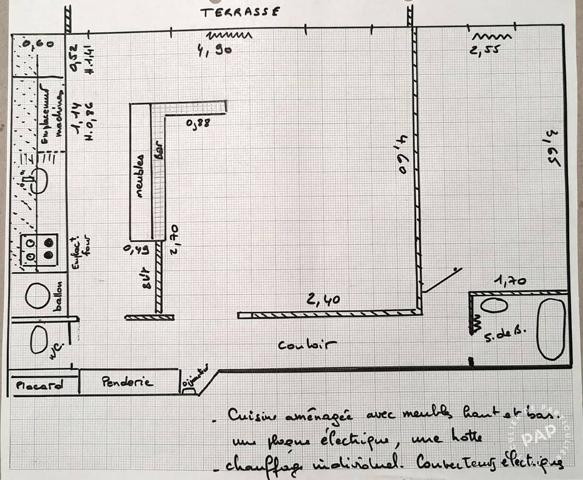 TERRASSE
0,60
4,90
2,55
0,52
H.1,41
Emplacement
machines
1,14
H.0,86
0,88
meubles
Bar
4,60
3,65
0,49
2,70
Emplact
four
BUT
ballon
2,40
1,70
W.C.
S. de B.
couloir
Placard
Penderie
- Cuisine aménagée avec meubles haut et bas.
une plaque électrique, une hotte
- chauffage individuel. Convecteurs électriques
PAP